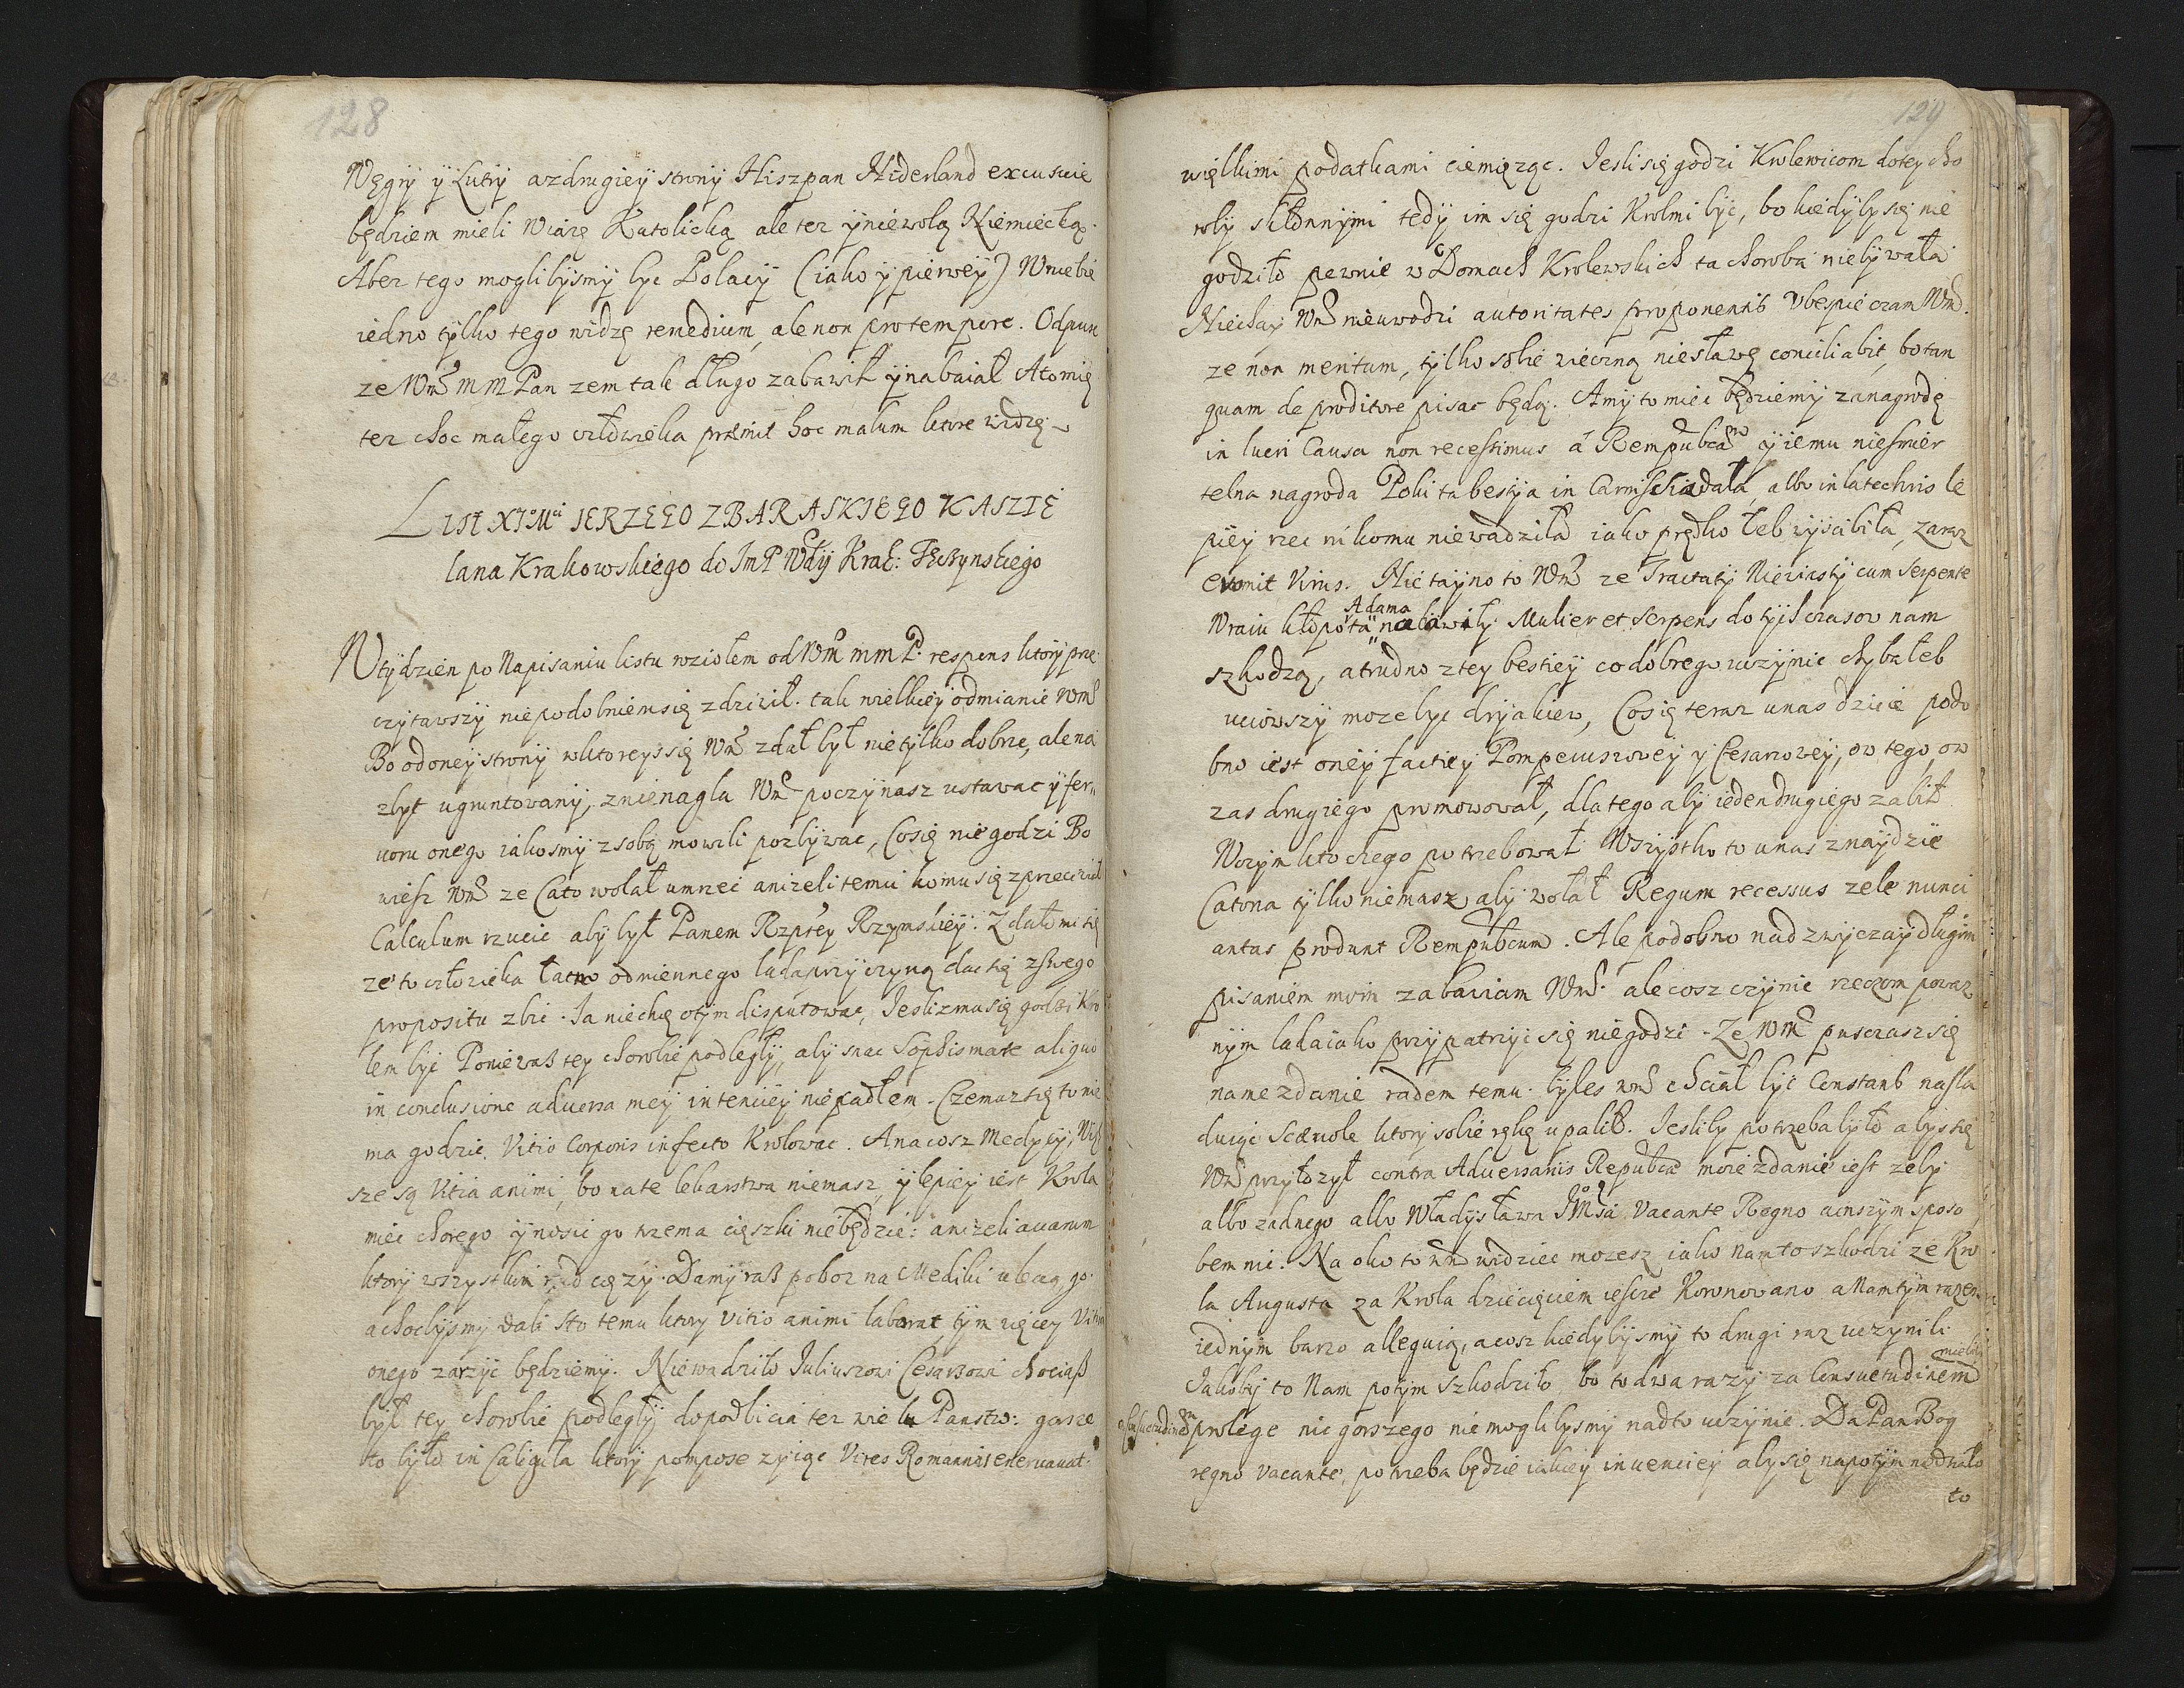 128
Węgry y Lutry azdrugiey strony Hiszpan Niderland excuscie
będziem mieli Wiarę Katolicką ale tez yniewolą Niemiecką.
Abez tego moglibysmy byc Polacy (iako y pierwey) Wniebie
iedno tylko tego widzę remedium, ale non pro tempore. Odpusc
ze Wm̃ MM Pan zem tak długo zabawił ynabaiał Atomię
tez choc małego człowieka przeniił hoc malum ktore widzę
List XJoMci JERZEGO ZBARASKIEGO KASZTE
lana Krakowskiego do JmP Wdy Krak: Tęczynskiego
Wtydzien po Napisaniu listu wziołem od Wm̃ mm P. respons ktory prze
czytawszy niepodobniem się zdziwił. tak wielkiey odmianie Wm̃
Bo odoney strony wktoreys się Wm̃ zdał był nietylko dobrze, ale na
zbyt ugruntowany, znienagła Wm̃ poczynasz ustawac y fer„
uoru onego iakosmy zsobą mowili pozbywac, Co się niegodzi Bo
wiesz Wm̃ ze Cato wolał umrzec anizeli temu komu się zprzeciwił
Calculum rzucic aby był Panem Rzptey Rzymskiey. Zdało mi się
ze to człowieka łacno odmiennego ladaprzyczyną dac się zswego
propositu zbic. Ja niechcę otym disputowac, Jesli zmu się godzi Kro
lem byc Poniewasz tey chorobie podległy, aby snac Sophismate aliquo
in conclusione aduersa mey intenciey niepadłem. Czemusz się to nie
ma godzic, Vitio Corporis infecto Krolowac. Anacosz Medycy, Więk
sze są Vitia animi, bo nate lekarstwa niemasz, ylepiey iest Krola
miec chorego ynosic go trzema cięszki niebędzie: anizeli auarum
ktory wszystkim rad cięzy. Damy rasz pobor na Mediki uleczą go.
achocbysmy dali sto temu ktory Vitio animi laborat tym więcey Vitiu
onego zarzyc będziemy. Niewadziło Juliuszowi Cesarzowi chociasz
był tey chorobie podległy dopodbicia tez wielu Panstw: gorsze
to było in Caligula ktory pompose zyiąc Vires Romannis eneruauat.
129
więlkimi podatkami ciemięząc. Jesli się godzi Krolewicom dotey cho
roby skłonnymi tedy im się godzi Krolmi byc, bo kiedyby się nie
godziło pewnie w Domach Krolewskich ta choroba niebywała
Niechay Wm̃ nieuwodzi autoritates proponentis Vbespieczam Wm̃.
ze non meritum, tylko sobie wieczną niesławę conciliabit, bo tan
quam de proditore pisac będą. Amy to miec będziemy zanagrodę
in lucri Causa non recessimus á Rempubcam yiemu niesmier
telna nagroda Poki ta bestya in Carnis siadała, albo in latechris le
piey rzec nikomu niewadziła iako prędko łeb wyscibiła, zaraz
euomit Virus. Nie tayno to Wm̃ ze Tractaty Niewiasty cum Serpente
Wraiu kłopota Adama nabawiły. Mulier et Serpens do tych czasow nam
szkodzą, atrudno ztey bestiey co dobrego uczynic chyba łeb
uciowszy moze byc dryakiew, Co się teraz unas dzieie podo
bno iest oney factiey Pompeiuszowey y Cesarzowey, ow tego, ow
zas drugiego promowował, dla tego aby ieden drugiego zabił
Wczym kto czego potrzebował. Wszystko to unas znaydzie
Catona tylko niemasz, aby wołał Regum recessus zele nunci
antas produnt Rempubcum. Ale podobno nadzwyczay długim
pisaniem moim zabawiam Wm̃. ale cosz czynic rzeczom powaz
nym ladaiako przypatrzyc się niegodzi. Ze Wm̃ puszczasz się
name zdanie radem temu. bylesz wm̃ chciał byc Constans nasla
duiąc Scæuole ktory sobie rękę upalił. Jesliby potrzeba było abys się
Wm̃ przyłozył contra Aduersariis Repubcæ moie zdanie iest zeby
albo zadnego albo Władysława JMsci Vacante Regno ainszym sposo
bem nic. Na oko to wm̃ widziec mozesz iako nam to szkodzi ze Kro
la Augusta za Krola dziecięciem ieszcze Koronowano aNam tym razem
iednym barzo alleguią, acosz kiedybysmy to drugi raz uczynili
Jakoby to Nam potym szkodziło, bo to dwa razy za Consuetudinem mieliby
prolege nic gorszego niemoglibysmy nadto uczynic. Da Pan Bog
regno vacante, potrzeba będzie iakiey inuenciey aby się napotym niedziało
to